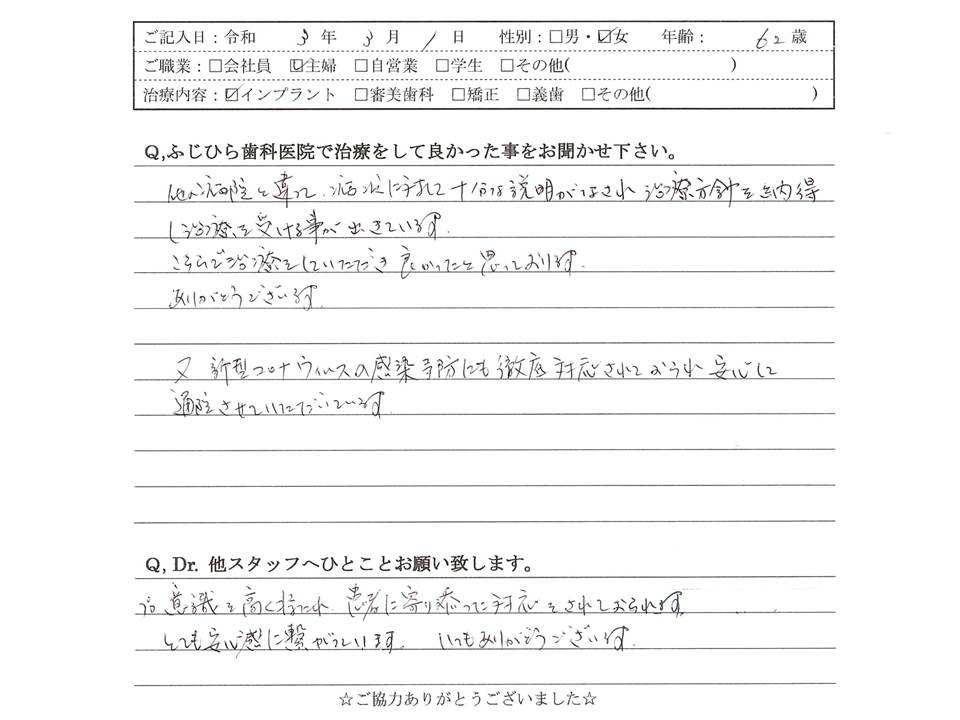 ご記入日：令和 3 年 3 月 1 日 性別：□男・☑女 年齢： 62 歳
ご職業：□会社員 ☑主婦 □自営業 □学生 □その他( )
治療内容：☑インプラント □審美歯科 □矯正 □義歯 □その他( )
Q,ふじひら歯科医院で治療をして良かった事をお聞かせ下さい。
他の病院と違って、病状に対して十分な説明がなされ 治療方針を納得
し治療を受ける事が出きています。
こちらで治療をしていただき良かったと思っております。
ありがとうございます。
又 新型コロナウィルスの感染予防にも徹底対応されておられ 安心して
通院させていただいています。
Q, Dr. 他スタッフへひとことお願い致します。
プロ意識を高く持たれ 患者に寄り添った対応をされておられます。
とても安心感に繋がっています。 いつもありがとうございます。
☆ご協力ありがとうございました☆